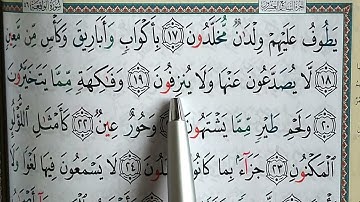 يَطُوفُ عَلَيْهِمْ وِلْدَٰنٌ مُّخَلَّدُونَ ١٧ بِأَكْوَابٍ وَأَبَارِيقَ وَكَأْسٍ مِّن مَّعِينٍ
١٨ لَّا يُصَدَّعُونَ عَنْهَا وَلَا يُنزِفُونَ ١٩ وَفَٰكِهَةٍ مِّمَّا يَتَخَيَّرُونَ
٢٠ وَلَحْمِ طَيْرٍ مِّمَّا يَشْتَهُونَ وَحُورٌ عِينٌ ٢٢ كَأَمْثَٰلِ ٱللُّؤْلُؤِ
ٱلْمَكْنُونِ ٢٣ جَزَآءًۢ بِمَا كَانُوا۟ ٢٤ لَا يَسْمَعُونَ فِيهَا لَغْوًا وَلَا